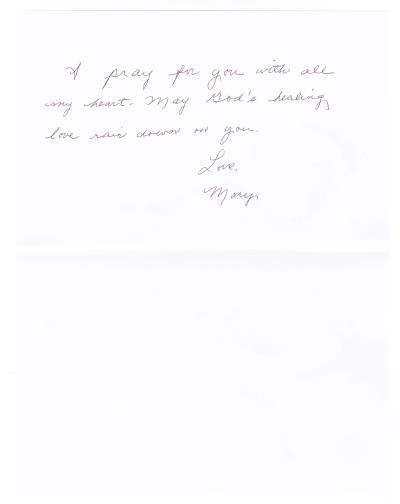 I pray for you with all
my heart. May God's healing
love rain down on you.
Love,
Mary